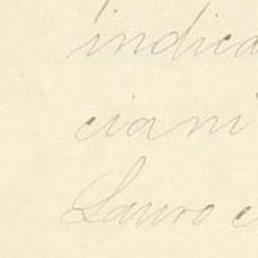 indica
ciani
Lauro e